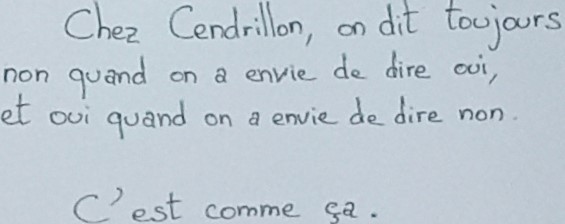 Chez Cendrillon, on dit toujours
non quand on a envie de dire oui,
et oui quand on a envie de dire non.
C'est comme ça.